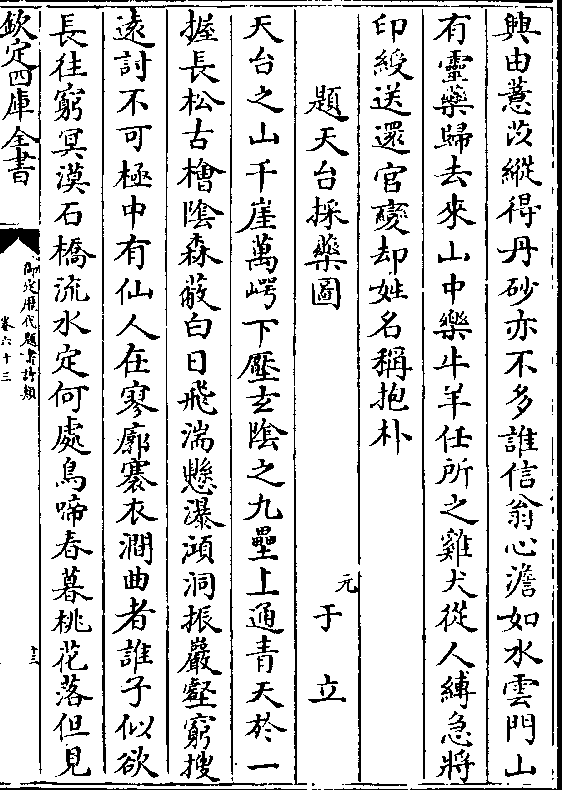 興由薏苡縱得丹砂亦不多誰信翁心澹如水雲門山
有靈藥歸去來山中樂牛羊任所之雞犬從人縛急將
印綬送還官變却姓名稱抱朴
題天台採藥圖
元于立
天台之山千崖萬崿下壓玄陰之九壘上通青天於一
握長松古檜陰森蔽白日飛湍懸瀑澒洞振巖壑窮搜
遠討不可極中有仙人在寥廓褰衣澗曲者誰子似欲
長往窮冥漠石橋流水定何處鳥啼春暮桃花落但見
欽定四庫全書
御定歷代題畫詩類
卷六十三
十三